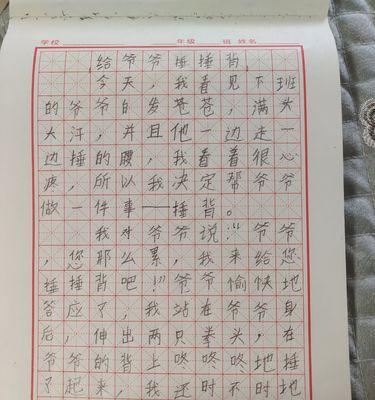 学校 年级 班 姓名
给爷爷捶捶背
今天，我看见下班
的爷爷白发苍苍，满头
大汗，并且他一边走一
边捶的腰，我看着很心
疼，所以我决定帮爷爷
做一件事——捶背。
我对爷爷说：“爷爷
，您那么累，我来给您
捶捶背吧！”爷爷愉快地
答应了，我站在爷爷身
后，伸出两只拳头，在
爷爷的背上咚咚咚地捶
了起来，我还时不时地